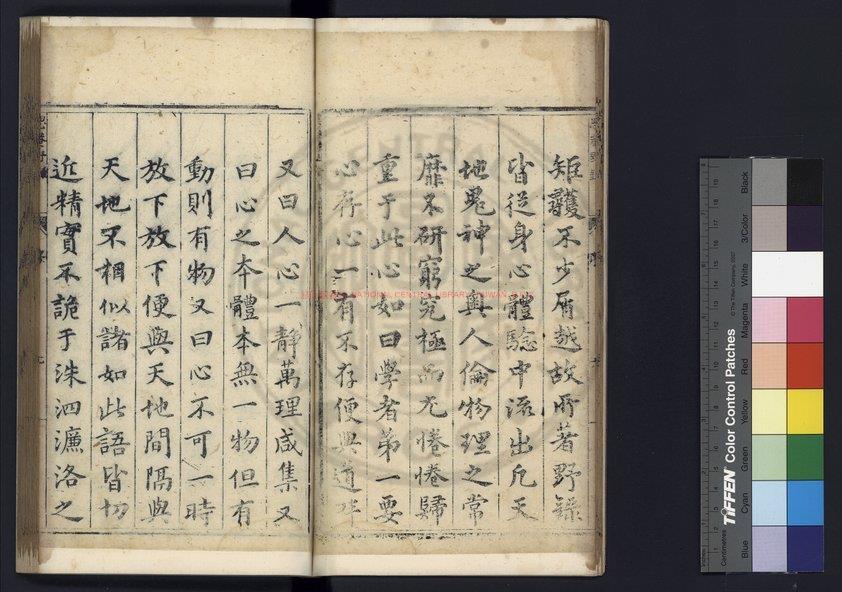 矩彠不少屑越故所著野錄
皆從身心體驗中流出凡天
地鬼神之奥人倫物理之常
靡不研窮究極而尤惓惓歸
重于此心如曰學者第一要
心存心一有不存便與道
又曰人心一静萬理咸集又
曰心之本體本無一物但有
動則有物又曰心不可一時
放下放下便與天地間隔與
天地不相似諸如此語皆切
近精實不詭于洙泗濂洛之
NATIONAL CENTRAL LIBRARY, TAIWAN
TIFFEN Color Control Patches
© The Tiffen Company, 2007
Centimetres
Inches
Blue
Cyan
Green
Yellow
Red
Magenta
White
3/Color
Black